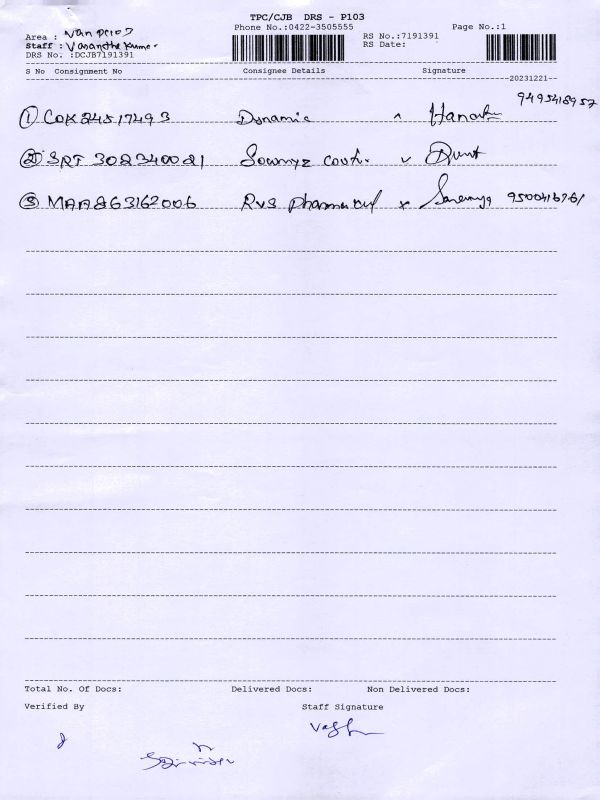 TPC/CJB DRS - P103
Phone No.:0422-3505555
Page No.:1
Area :
Staff : Vasantha Kumar
DRS No. :DCJB7191391
RS No.:7191391
RS Date:
S No Consignment No Consignee Details Signature
--20231221--
9495418957
① COK 24517493 Dynamic
② SRT 302340021
③ MAA 863162006 RVS 9500416761
Total No. Of Docs: Delivered Docs: Non Delivered Docs:
Verified By Staff Signature